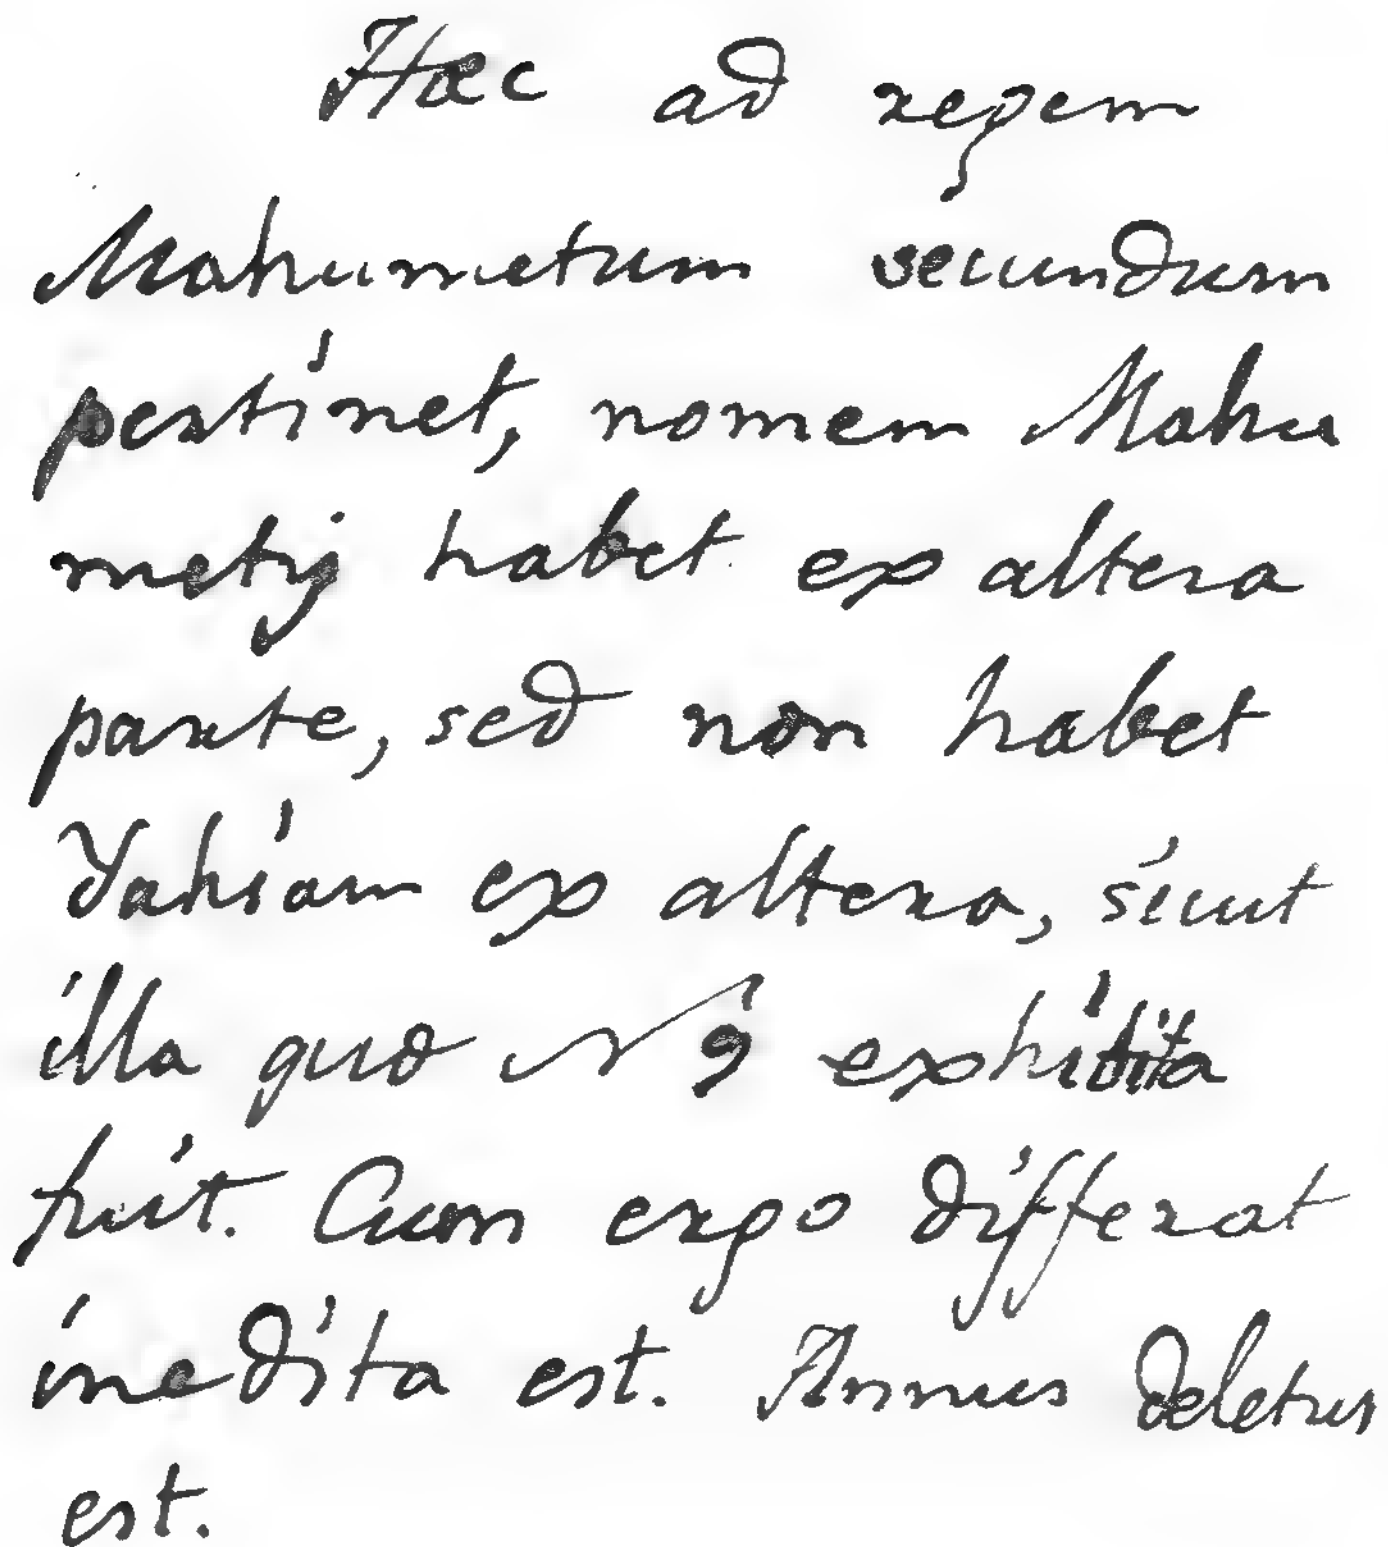 Hæc ad regem
Mahumetum secundum
pertinet, nomem Mahu
metij habet ex altera
parte, sed non habet
Yahiam ex altera, sicut
illa quo Nº 9 exhibita
fuit. Cum ergo differat
inedita est. Annus deletus
est.